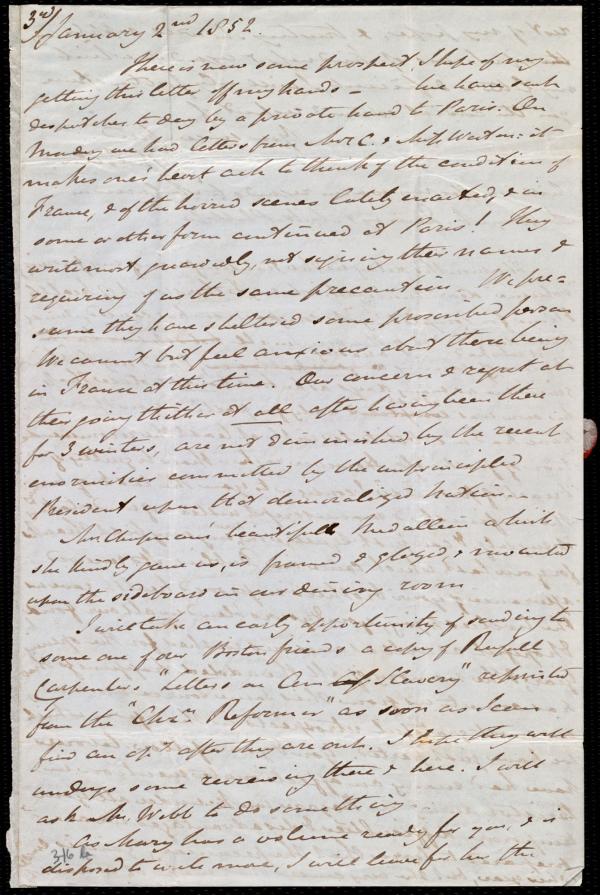 3rd/
January 2nd 1852.
There is now some prospect I hope of my
getting this letter off my hands – We have such
despatches to day by a private hand to Paris. On
Monday we had letters from Mrs C. & Miss Weston: it
makes one's heart ache to think of the condition of
France, & of the horrid scenes lately enacted, & in
some or other form continued at Paris! They
write most guardedly, not signing their names &
requiring of us the same precaution. We pre=
sume they have sheltered some proscribed person
We cannot but feel anxious about there being
in France at this time. Our concern & regret at
their going thither at all after having been there
for 3 winters, are not diminished by the recent
enormities committed by the unprincipled
President upon that demoralized nation.
Mrs Chapman's beautiful Medallion which
she kindly gave us, is framed & glazed & mounted
upon the sideboard in our dining room
I will take an early opportunity of sending to
some one of our Boston friends a copy of Russell
Carpenter's "Letters on Am Slavery" reprinted
from the "Chrn. Reformer" as soon as I can
find an opy. after they are out. I hope they will
undergo some reviewing there & here. I will
ask Mr. Webb to do something
As Mary has a volume ready for you, & is
disposed to write more, I will leave for her the